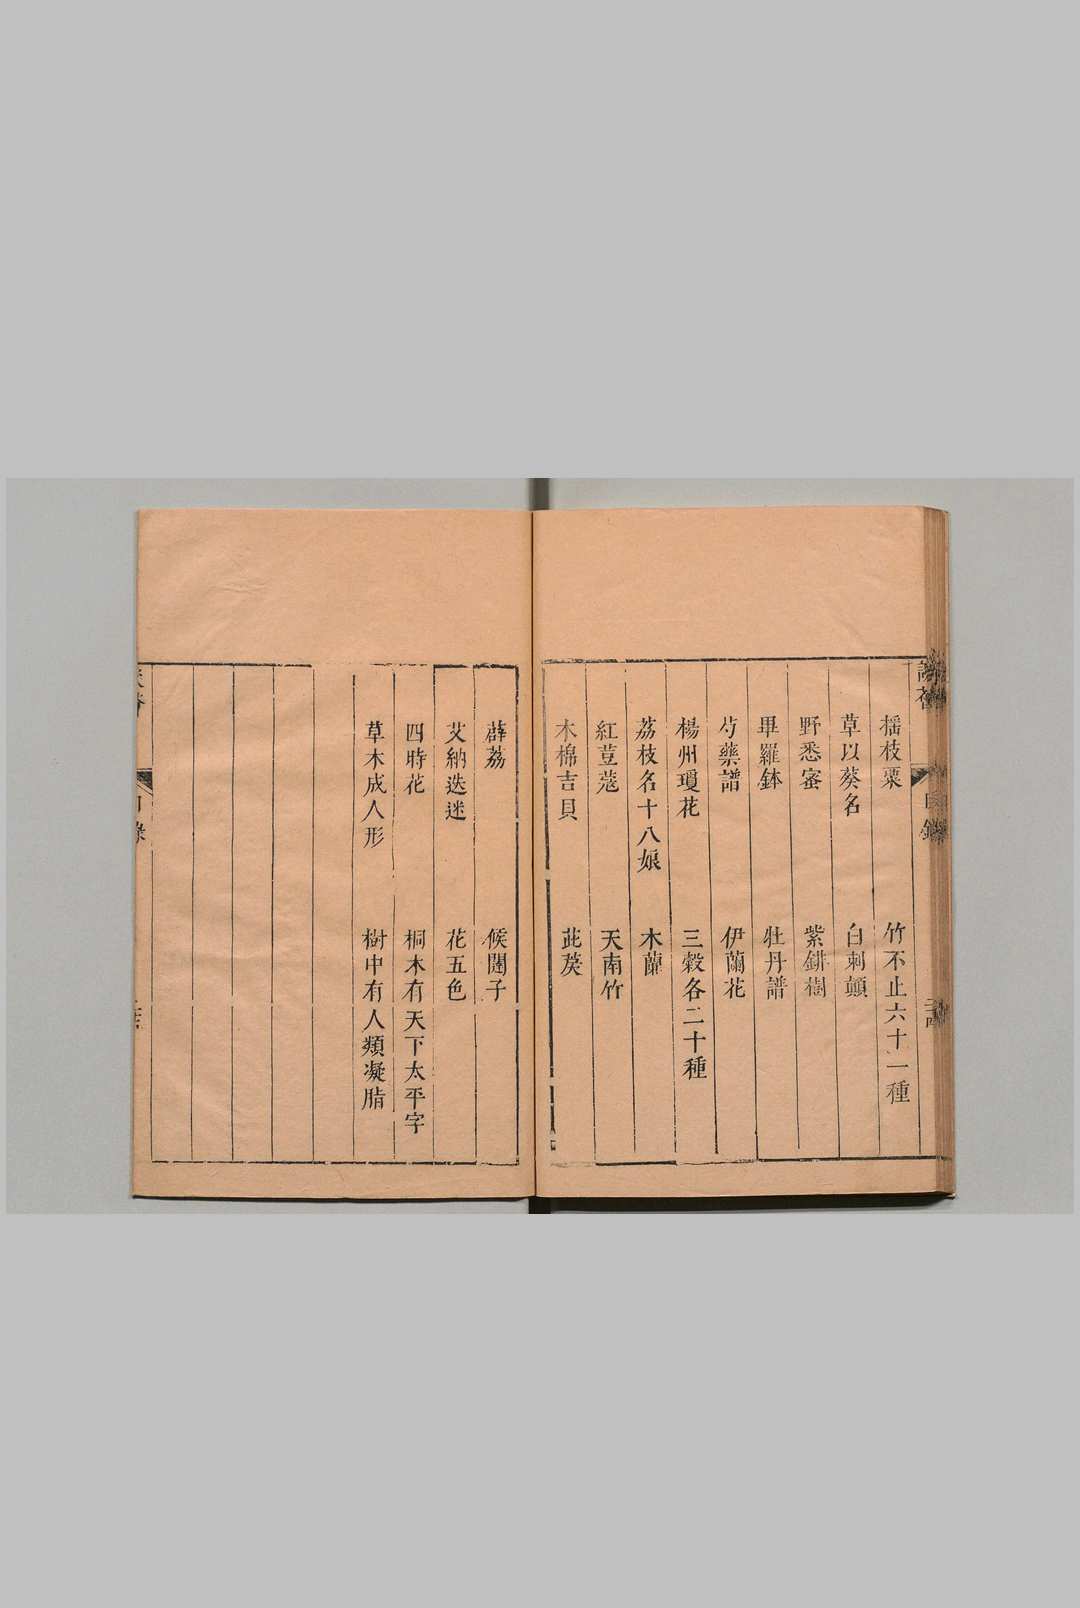 搖枝粟　竹不止六十一種
草以葵名　白刺顛
野悉蜜　紫緋樹
畢羅鉢　牡丹譜
芍藥譜　伊蘭花
楊州瓊花　三穀各二十種
荔枝名十八娘　木蘭
紅荳蔻　天南竹
木棉吉貝　茈莢
薜荔　候閮子
艾納迭迷　花五色
四時花　桐木有天下太平字
草木成人形　樹中有人類凝脂
目錄